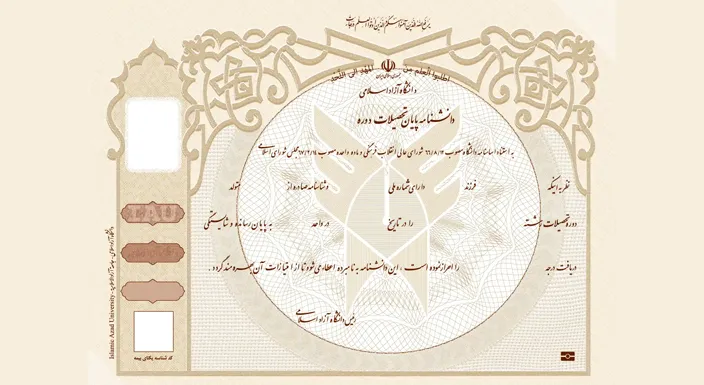 یرفع الله الذین آمنوا منکم والذین اوتوا العلم درجات
اطلبوا العلم من المهد الی اللحد
جمهوری اسلامی ایران
دانشگاه آزاد اسلامی
دانشنامه پایان تحصیلات دوره
به استناد اساسنامه دانشگاه مصوب شورای عالی انقلاب فرهنگی و ماده واحده مصوب مجلس شورای اسلامی
نظر به اینکه فرزند دارای شماره ملی و شناسنامه صادره از متولد
دوره تحصیلات رشته را در تاریخ در واحد به پایان رسانده و شایستگی
دریافت درجه را احراز نموده است ، این دانشنامه به نامبرده اعطاء می شود تا از امتیازات آن بهره مند گردد .
رئیس دانشگاه آزاد اسلامی
Islamic Azad University
کد شناسه یکتای بیمه